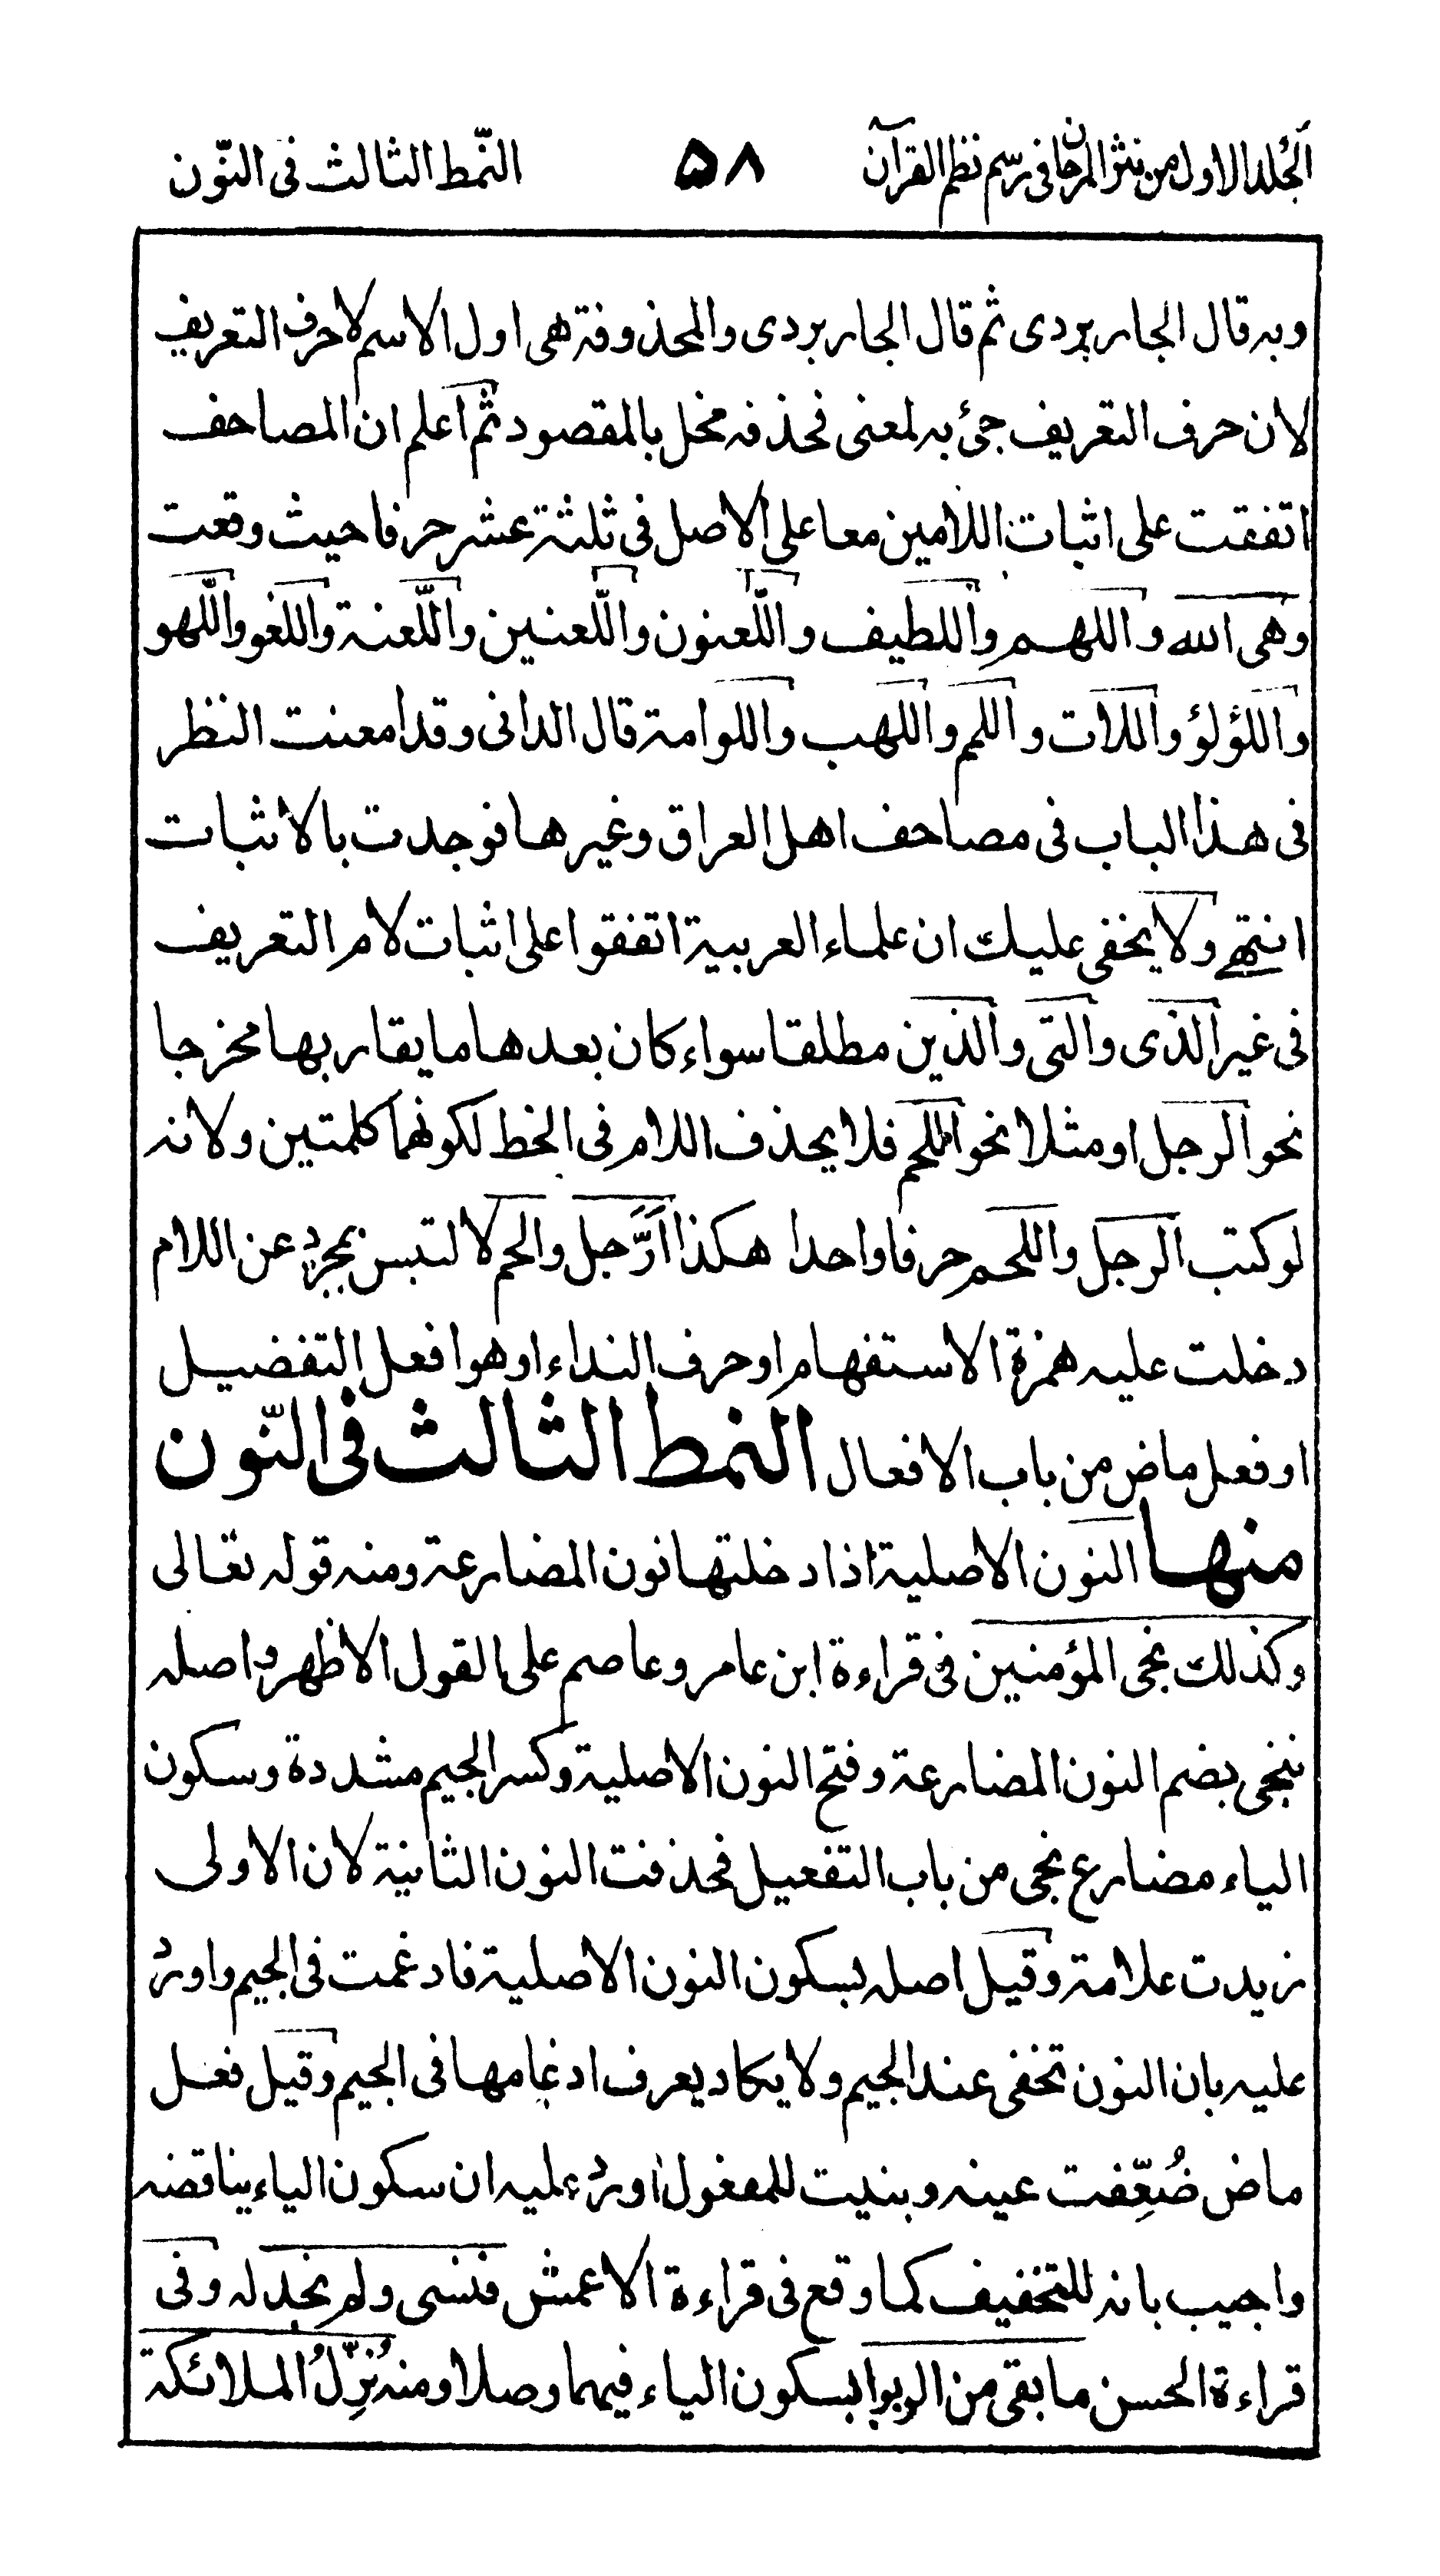 الجلد الاول من نثر المرجان فی رسم نظم القرآن ۵۸ النّمط الثالث فی النّون
وبه قال الجاربردی ثم قال الجاربردی والمحذوفة هی اول الاسم لا حرف التعریف
لان حرف التعریف جئ به لمعنی فحذفه مخل بالمقصود ثم اعلم ان المصاحف
اتفقت علی اثبات اللامین معا علی الاصل فی ثلثة عشر حرفا حیث وقعت
وهی الله واللهم واللطیف واللّعنون واللّعنین واللّعنة واللغو واللّهو
واللؤلؤ واللات واللمم واللهب واللوامة قال الدانی وقد امعنت النظر
فی هذا الباب فی مصاحف اهل العراق وغیرها فوجدت بالاثبات
انتهے ولا یخفی علیك ان علماء العربیة اتفقوا علی اثبات لام التعریف
فی غیر الذی والتی والذین مطلقا سواء کان بعدها ما یقاربها مخرجا
نحو الرجل او مثلا نحو اللحم فلا یحذف اللام فی الخط لکونهما کلمتین ولانه
لو کتب الرجل واللحم حرفا واحدا هکذا ارَّجل والحم لالتبس بمجرد عن اللام
دخلت علیه همزة الاستفهام او حرف النداء او هو افعل التفضیل
او فعل ماض من باب الافعال النمط الثالث فی النّون
منها النون الاصلیة اذا دخلتها نون المضارعة ومنه قوله تعالی
وکذلك نجی المؤمنین فی قراءة ابن عامر وعاصم علی القول الاظهر واصله
ننجی بضم النون المضارعة وفتح النون الاصلیة وکسر الجیم مشددة وسکون
الیاء مضارع نجی من باب التفعیل فحذفت النون الثانیة لان الاولی
زیدت علامة وقیل اصله بسکون النون الاصلیة فادغمت فی الجیم واورد
علیه بان النون تخفی عند الجیم ولا یکاد یعرف ادغامها فی الجیم وقیل فعل
ماض ضُعِّفت عینه وبنیت للمفعول اورد علیه ان سکون الیاء یناقضه
واجیب بانه للتخفیف کما وقع فی قراءة الاعمش فنسی ولم نجد له وفی
قراءة الحسن ما بقی من الربوا بسکون الیاء فیهما وصلا ومنه نُزِّلُ الملائکة